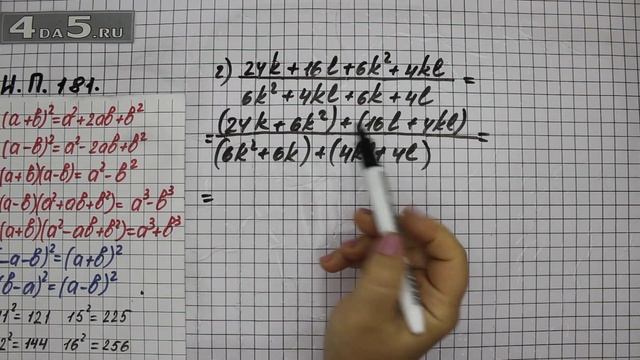 4DA5.RU
Н.П. 181.
(a+b)²=a²+2ab+b²
(a-b)²=a²-2ab+b²
(a+b)(a-b)=a²-b²
(a-b)(a²+ab+b²)=a³-b³
(a+b)(a²-ab+b²)=a³+b³
-a-b)²=(a+b)²
(b-a)²=(a-b)²
11²=121 15²=225
2²=144 16²=256
г) 24k+16l+6k²+4kl =
6k²+4kl+6k+4l
= (24k+6k²)+(16l+4kl) =
(6k²+6k)+(4k +4l)
=